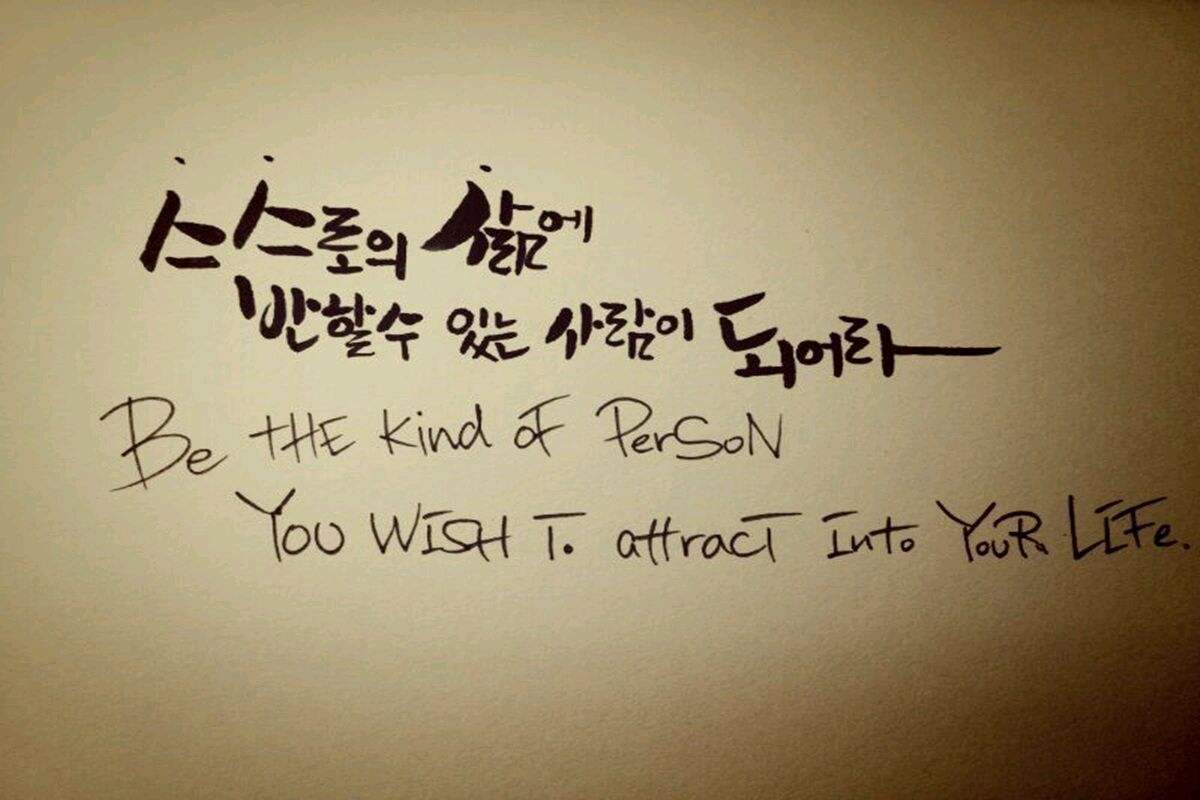 스스로의 삶에
반할수 있는 사람이 되어라
Be THE Kind oF PerSoN
You WISH To attracT Into YouR LIFe.